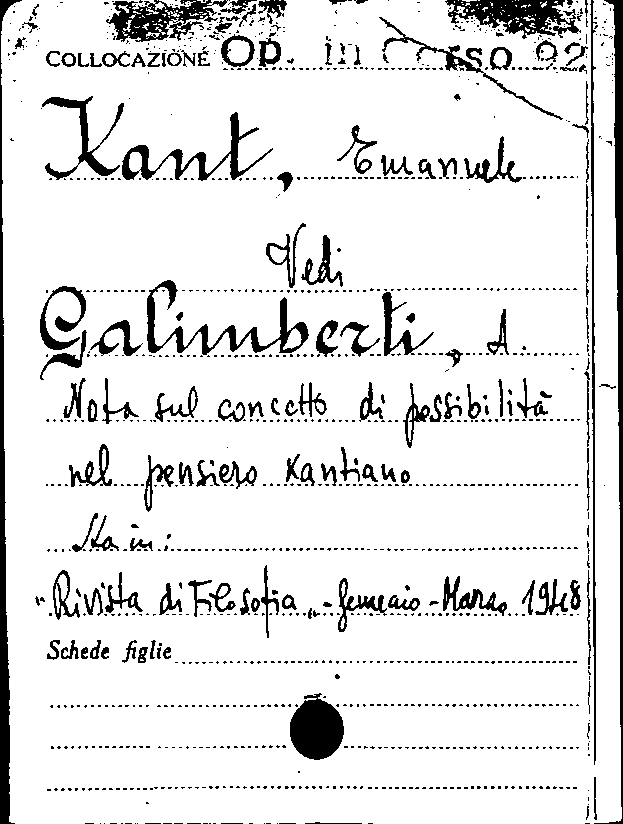 COLLOCAZIONE Op. in Corso 92
Kant, Emanuele
Vedi
Galimberti, A.
Nota sul concetto di possibilità
nel pensiero Kantiano
Sta in:
"Rivista di Filosofia„ - Gennaio - Marzo 1948
Schede figlie